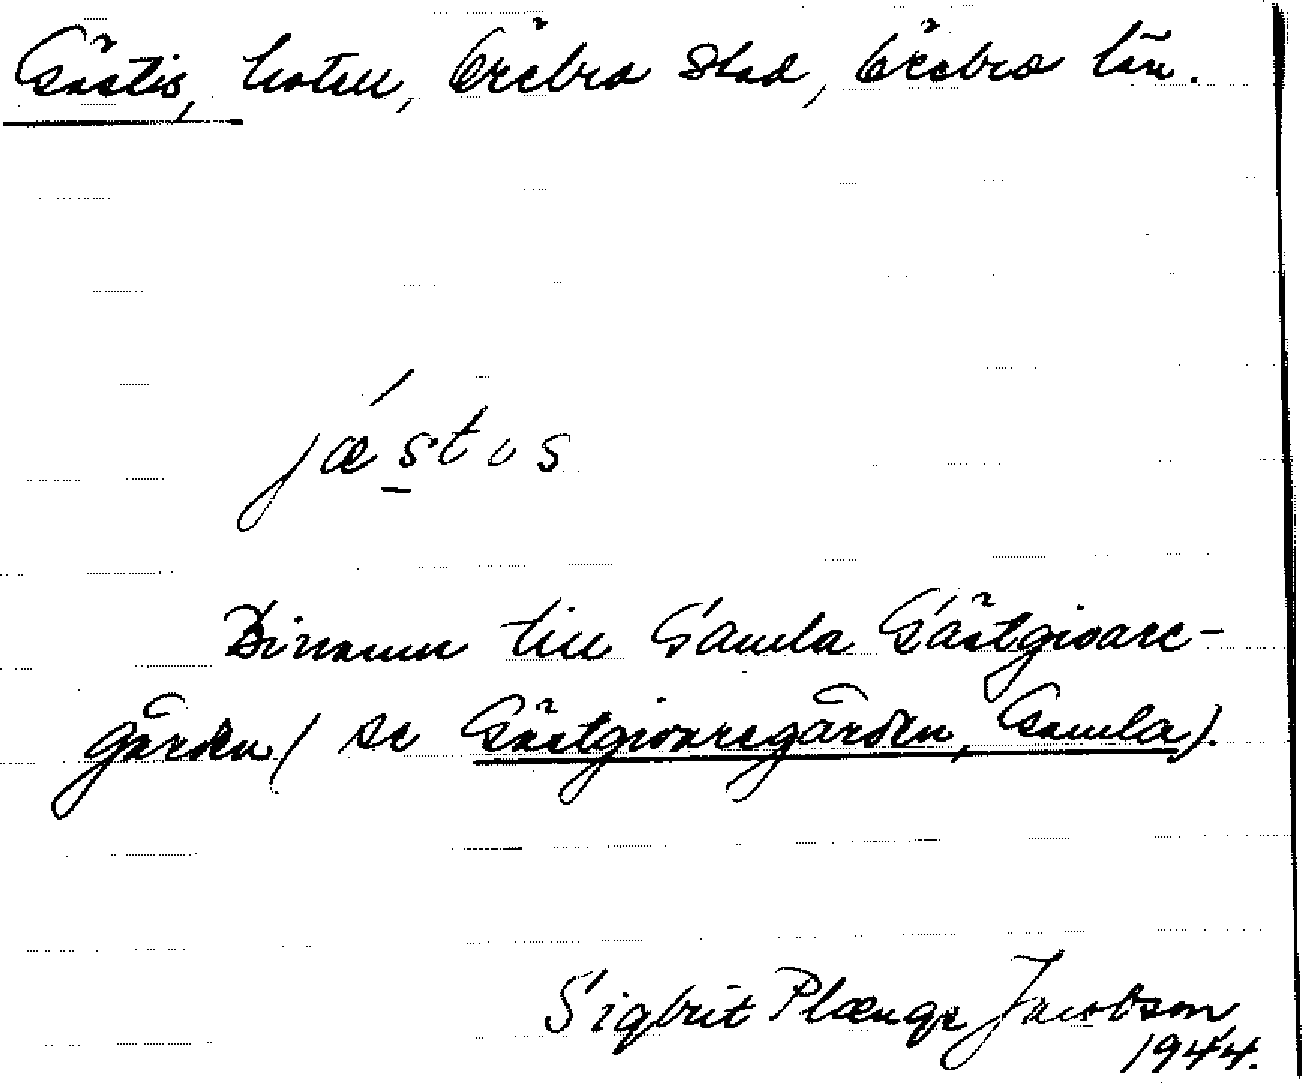 Gästis, hotell, Örebro stad, Örebro län.
jæ´stɩs
Binamn till Gamla Gästgivare-
gården (se Gästgivaregården, Gamla).
Sigbrit Plænge Jacobson
1944.